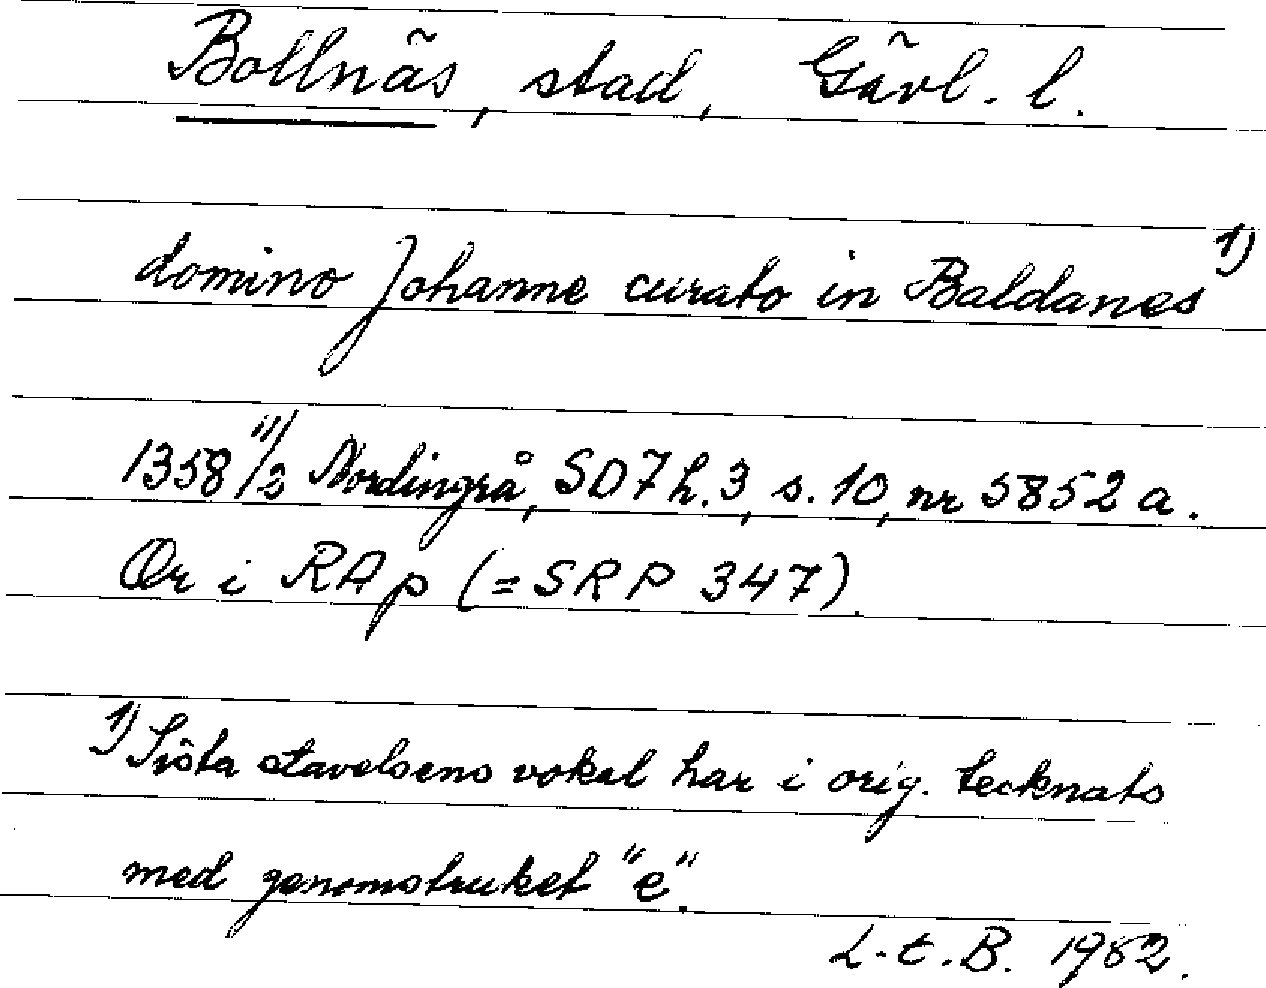 Bollnäs, stad, Gävl. l.
domino Johanne curato in Baldanes 1)
1358 11/2 Nordingrå, SD7 h.3, s.10, nr 5852 a.
Or i RAp (=SRP 347).
1) Sista stavelsens vokal har i orig. tecknats
med genomstruket "e".
L.E.B. 1982.